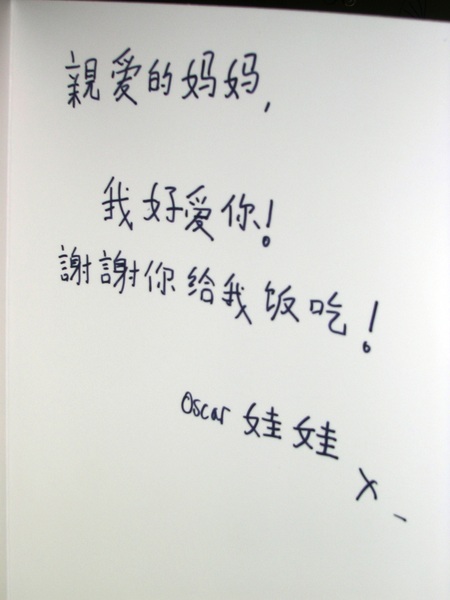 親爱的妈妈,
我好爱你!
謝謝你给我饭吃!
Oscar 娃娃
X